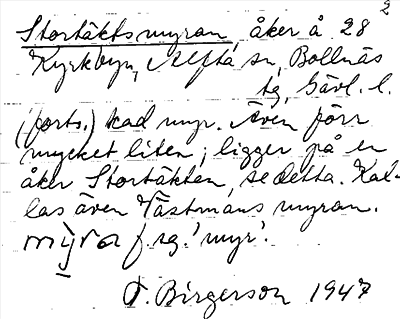 2
Stortäktsmyran, åker å 28
Kyrkbyn, Alfta sn, Bollnäs
tg, Gävl. l.
(forts.) kad myr. Även förr
mycket liten; ligger på en
åker Stortäkten, se detta. Kal-
las även Västmansmyran.
f sg. 'myr'.
T. Birgerson 1947